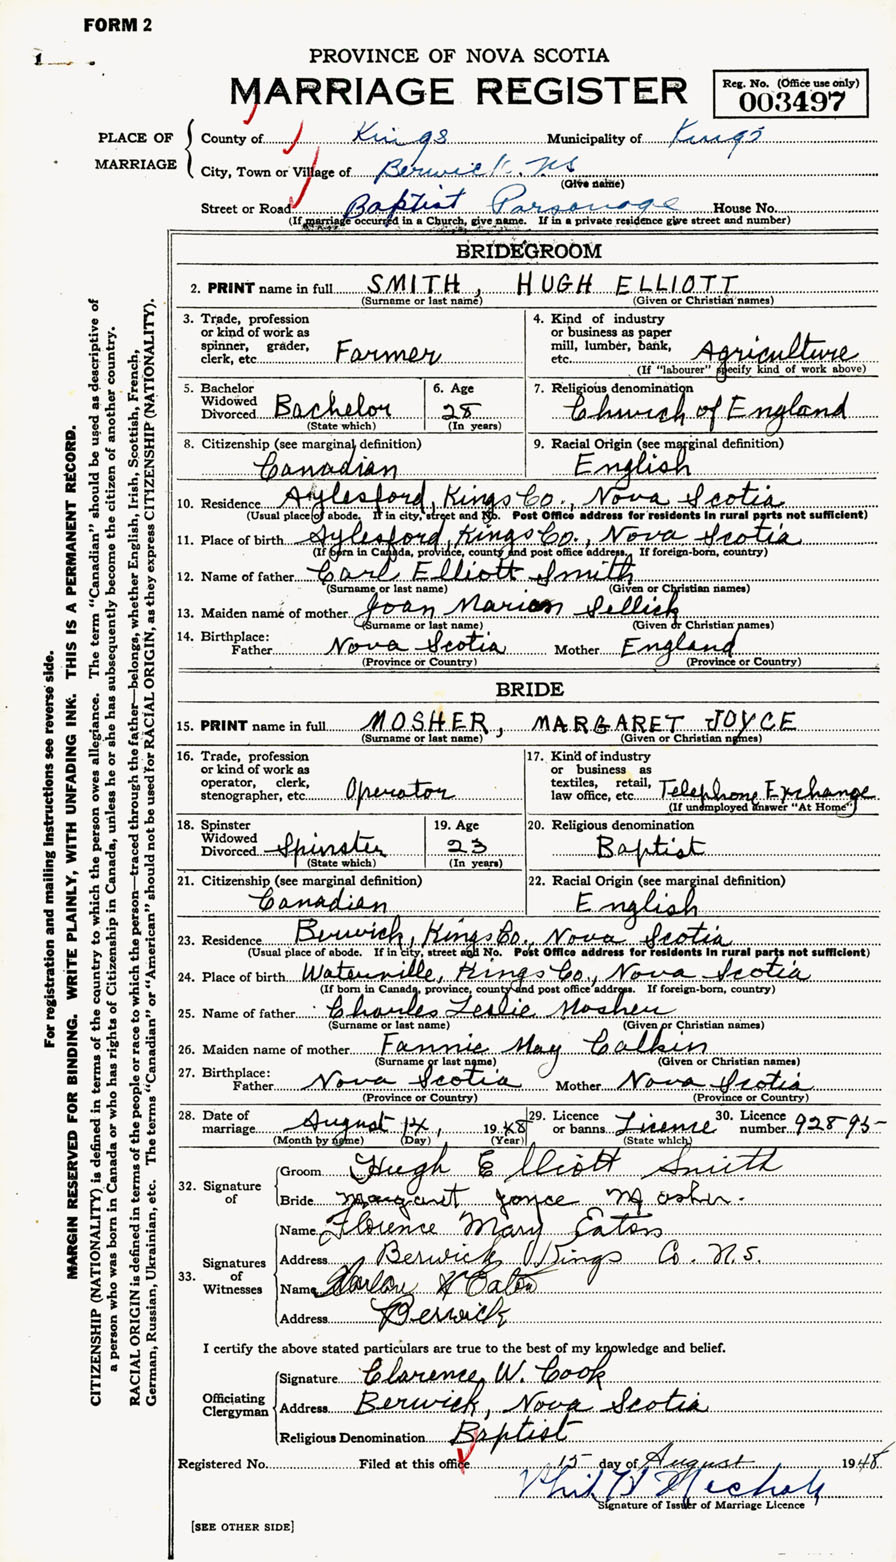 FORM 2
1
PROVINCE OF NOVA SCOTIA
MARRIAGE REGISTER
Reg. No. (Office use only)
003497
PLACE OF MARRIAGE
County of Kings Municipality of Kings
City, Town or Village of Berwick, NS
(Give name)
Street or Road Baptist Parsonage House No.
(If marriage occurred in a Church, give name. If in a private residence give street and number)
BRIDEGROOM
2. PRINT name in full SMITH, HUGH ELLIOTT
(Surname or last name) (Given or Christian names)
3. Trade, profession or kind of work as spinner, grader, clerk, etc. Farmer
4. Kind of industry or business as paper mill, lumber, bank, etc. Agriculture
(If "labourer" specify kind of work above)
5. Bachelor Widowed Divorced Bachelor
(State which)
6. Age 28
(In years)
7. Religious denomination
Church of England
8. Citizenship (see marginal definition)
Canadian
9. Racial Origin (see marginal definition)
English
10. Residence Aylesford, Kings Co., Nova Scotia
(Usual place of abode. If in city, street and No. Post Office address for residents in rural parts not sufficient)
11. Place of birth Aylesford, Kings Co., Nova Scotia
(If born in Canada, province, county and post office address. If foreign-born, country)
12. Name of father Carl Elliott Smith
(Surname or last name) (Given or Christian names)
13. Maiden name of mother Joan Marion Sellick
(Surname or last name) (Given or Christian names)
14. Birthplace:
Father Nova Scotia Mother England
(Province or Country) (Province or Country)
BRIDE
15. PRINT name in full MOSHER, MARGARET JOYCE
(Surname or last name) (Given or Christian names)
16. Trade, profession or kind of work as operator, clerk, stenographer, etc. Operator
17. Kind of industry or business as textiles, retail, law office, etc. Telephone Exchange
(If unemployed answer "At Home")
18. Spinster Widowed Divorced Spinster
(State which)
19. Age 23
(In years)
20. Religious denomination
Baptist
21. Citizenship (see marginal definition)
Canadian
22. Racial Origin (see marginal definition)
English
23. Residence Berwick, Kings Co., Nova Scotia
(Usual place of abode. If in city, street and No. Post Office address for residents in rural parts not sufficient)
24. Place of birth Waterville, Kings Co., Nova Scotia
(If born in Canada, province, county and post office address. If foreign-born, country)
25. Name of father Charles Leslie Mosher
(Surname or last name) (Given or Christian names)
26. Maiden name of mother Fannie May Calkin
(Surname or last name) (Given or Christian names)
27. Birthplace:
Father Nova Scotia Mother Nova Scotia
(Province or Country) (Province or Country)
28. Date of marriage August 14, 1948
(Month by name) (Day) (Year)
29. Licence or banns Licence
(State which)
30. Licence number 92895
32. Signature of
Groom Hugh Elliott Smith
Bride Margaret Joyce Mosher.
33. Signatures of Witnesses
Name Florence Mary Eaton
Address Berwick Kings Co. N.S.
Name Eaton
Address Berwick
I certify the above stated particulars are true to the best of my knowledge and belief.
Officiating Clergyman
Signature Clarence W. Cook
Address Berwick, Nova Scotia
Religious Denomination Baptist
Registered No. Filed at this office 15 day of August 1948
Nichols
Signature of Issuer of Marriage Licence
[SEE OTHER SIDE]
For registration and mailing instructions see reverse side.
MARGIN RESERVED FOR BINDING. WRITE PLAINLY, WITH UNFADING INK. THIS IS A PERMANENT RECORD.
CITIZENSHIP (NATIONALITY) is defined in terms of the country to which the person owes allegiance. The term "Canadian" should be used as descriptive of
a person who was born in Canada or who has rights of Citizenship in Canada, unless he or she has subsequently become the citizen of another country.
RACIAL ORIGIN is defined in terms of the people or race to which the person—traced through the father—belongs, whether English, Irish, Scottish, French,
German, Russian, Ukrainian, etc. The terms "Canadian" or "American" should not be used for RACIAL ORIGIN, as they express CITIZENSHIP (NATIONALITY).